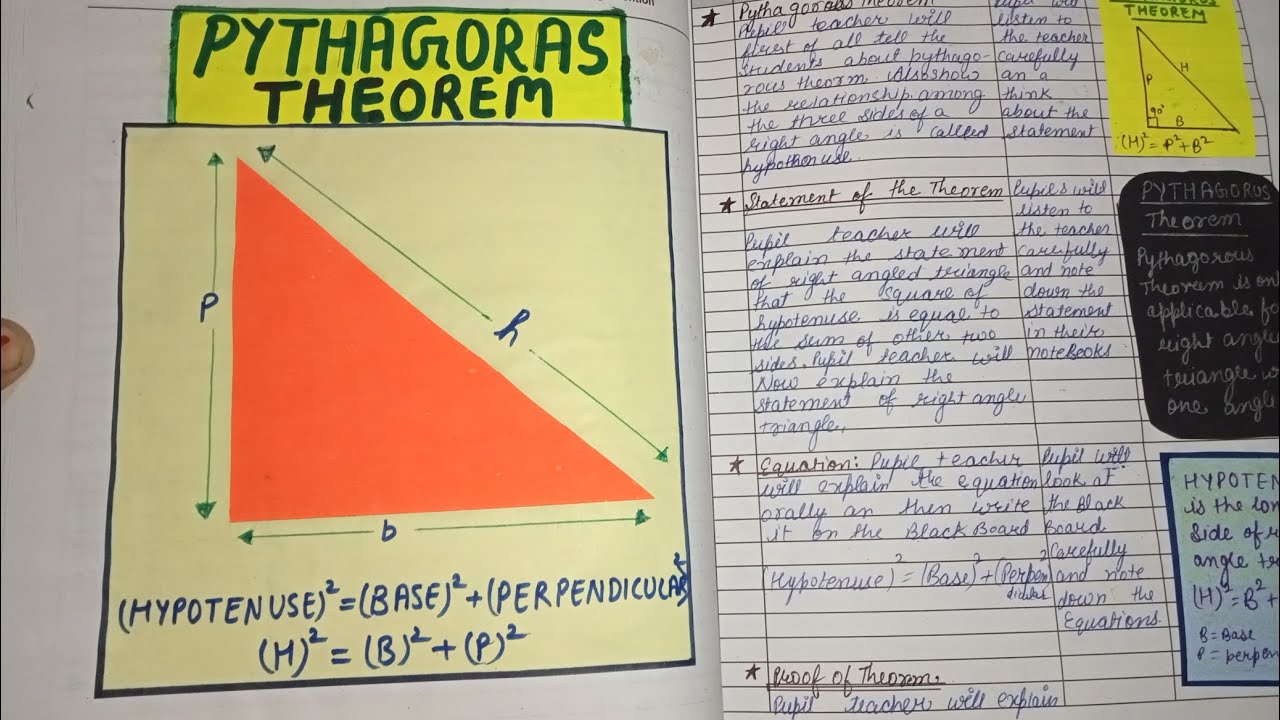 PYTHAGORAS
THEOREM
P
h
b
(HYPOTENUSE)² = (BASE)² + (PERPENDICULAR)²
(H)² = (B)² + (P)²
★ Pythagorass Theorem
Pupil teacher will
first of all tell the
students about pythago-
rous theorm. Also show
the relationship among
the three sides of a
right angle is called
hypothonuse.
Pupil will
listen to
the teacher
carefully
an a
think
about the
statement
★ Statement of the Theorem
Pupil teacher will
explain the statement
of right angled triangle
that the square of
hypotenuse is equal to
the sum of other two
sides. Pupil teacher will
Now explain the
statement of right angle
triangle.
Pupils will
listen to
the teacher
carefully
and note
down the
statement
in their
noteBooks
★ Equation: Pupil teacher
will explain the equation
orally an then write
it on the Black Board
(Hypotenuse)² = (Base)² + (Perpen
dicular)²
Pupil will
look at
the Black
Board
Carefully
and note
down the
Equations.
★ Proof of Theorem.
Pupil teacher will explain
THEOREM
P
H
90°
B
(H)² = P² + B²
PYTHAGORUS
Theorem
Pythagorous
Theorem is on
applicable fo
right angle
triangle w
one angle
HYPOTEN
is the lon
Side of r
angle tr
(H)² = B² +
B = Base
P = perpen